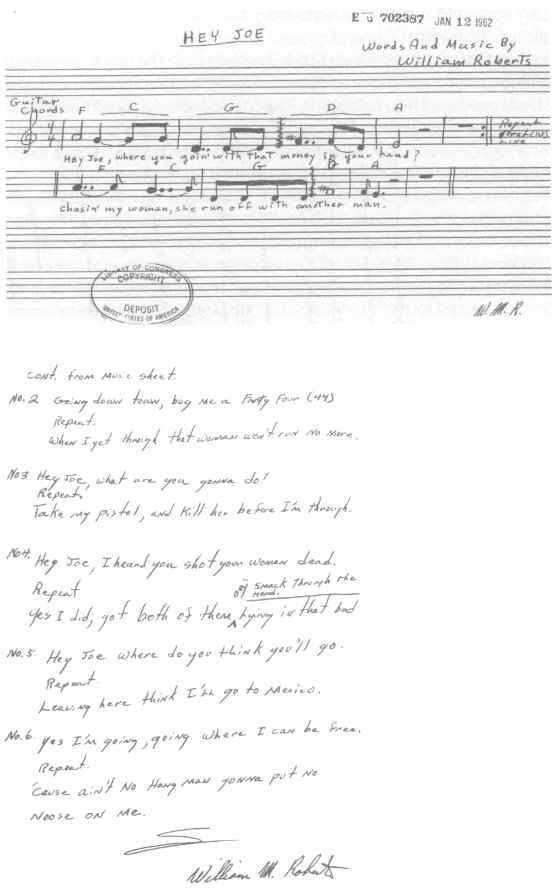 E ū 702387 JAN 12 1962
HEY JOE
Words And Music By
William Roberts
Guitar
Chords F C G D A
Repeat
Hey Joe, where you goin' with that money in your hand?
F C G D A
Chasin' my woman, she run off with another man.
LIBRARY OF CONGRESS
COPYRIGHT
DEPOSIT
UNITED STATES OF AMERICA
W. M. R.
cont. from music sheet.
No. 2 Going down town, buy me a Forty Four (44)
Repeat.
When I get through that woman won't run no more.
No 3 Hey Joe, what are you gonna do!
Repeat.
Take my pistol, and kill her before I'm through.
No 4. Hey Joe, I heard you shot your woman dead.
Repeat
or smack through the
head.
Yes I did, got both of them lying in that bed
No. 5 Hey Joe where do you think you'll go.
Repeat.
Leaving here think I'll go to Mexico.
No. 6 Yes I'm going, going where I can be free.
Repeat.
'Cause ain't no Hang man gonna put no
Noose on me.
William M. Roberts